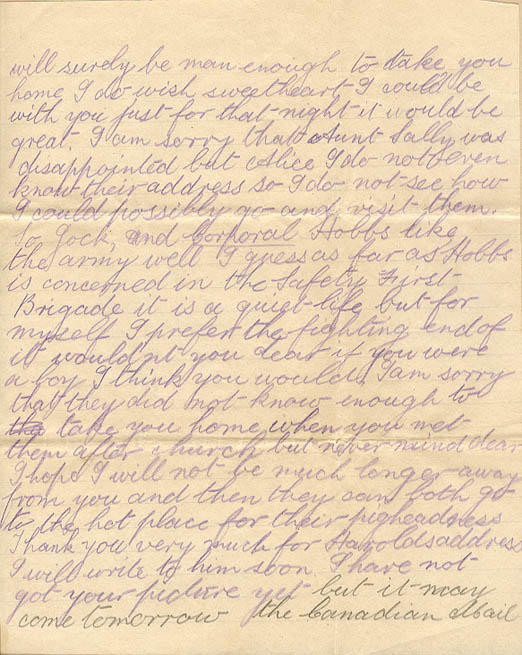 will surely be man enough to take you
home I do wish sweetheart I could be
with you just for that night it would be
great. I am sorry that Aunt Sally was
disappointed but Alice I do not even
know their address so I do not see how
I could possibly go and visit them.
So Jock, and Corporal Hobbs like
the army well I guess as far as Hobbs
is concerned in the Safety First
Brigade it is a quiet life but for
myself I prefer the fighting end of
it wouldn't you dear if you were
a boy I think you would. I am sorry
that they did not know enough to
take you home when you met
them after church but never mind dear
I hope I will not be much longer away
from you and then they can both go
to the hot place for their pigheadness
Thank you very much for Harolds address
I will write to him soon. I have not
got your picture yet but it may
come tomorrow the Canadian Mail